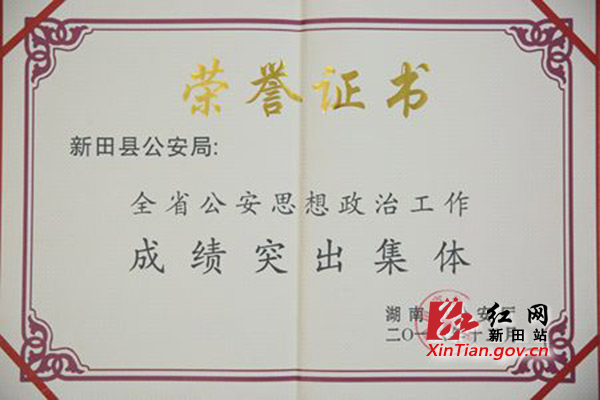 荣誉证书
新田县公安局:
全省公安思想政治工作
成绩突出集体
湖南 安厅
二〇一 十 月
红网
新田站
XinTian.gov.cn